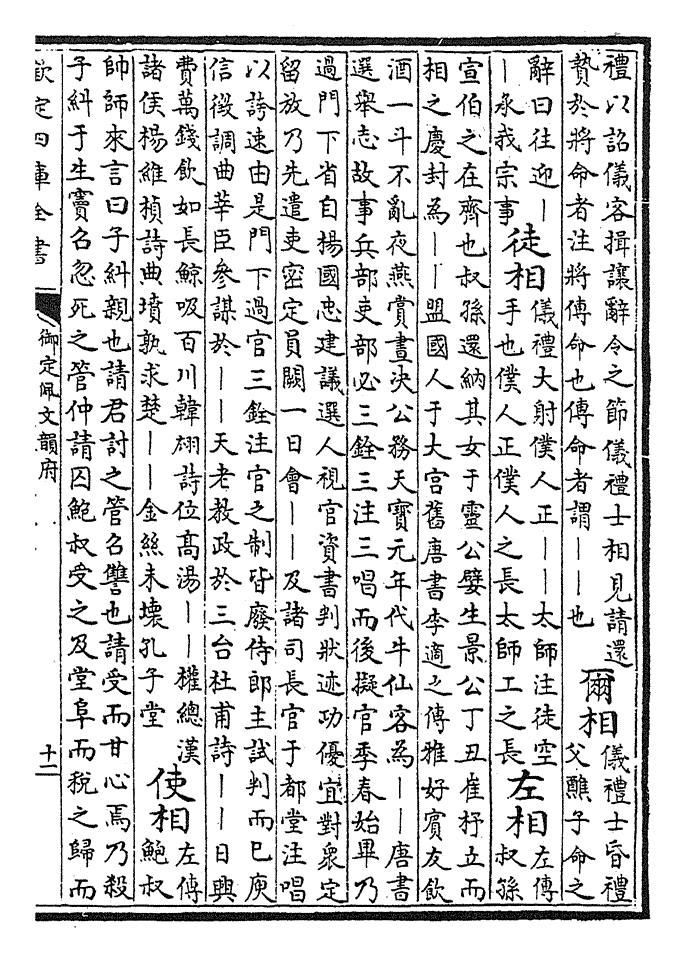 禮以詔儀容揖讓辭令之節儀禮士相見請還
贄於將命者注將傳命也傳命者謂——也
爾相
儀禮士昏禮
父醮子命之
辭曰往迎—
—承我宗事
徒相
儀禮大射僕人正——太師注徒空
手也僕人正僕人之長太師工之長
左相
左傳
叔孫
宣伯之在齊也叔孫還納其女于靈公嬖生景公丁丑崔杼立而
相之慶封為——盟國人于大宮舊唐書李適之傳雅好賓友飲
酒一斗不亂夜燕賞晝决公務天寶元年代牛仙客為——唐書
選舉志故事兵部吏部必三銓三注三唱而後擬官季春始畢乃
過門下省自楊國忠建議選人視官資書判狀迹功優宜對衆定
留放乃先遣吏密定員闕一日會——及諸司長官于都堂注唱
以誇速由是門下過官三銓注官之制皆廢侍郎主試判而已庾
信徵調曲莘臣參謀於——天老教政於三台杜甫詩——日興
費萬錢飲如長鯨吸百川韓翃詩位髙湯——權總漢
諸侯楊維楨詩曲墳孰求楚——金絲未壞孔子堂
使相
左傳
鮑叔
帥師來言曰子糾親也請君討之管召讐也請受而甘心焉乃殺
子糾于生竇召忽死之管仲請囚鮑叔受之及堂阜而稅之歸而
欽定四庫全書
御定佩文韻府
十二